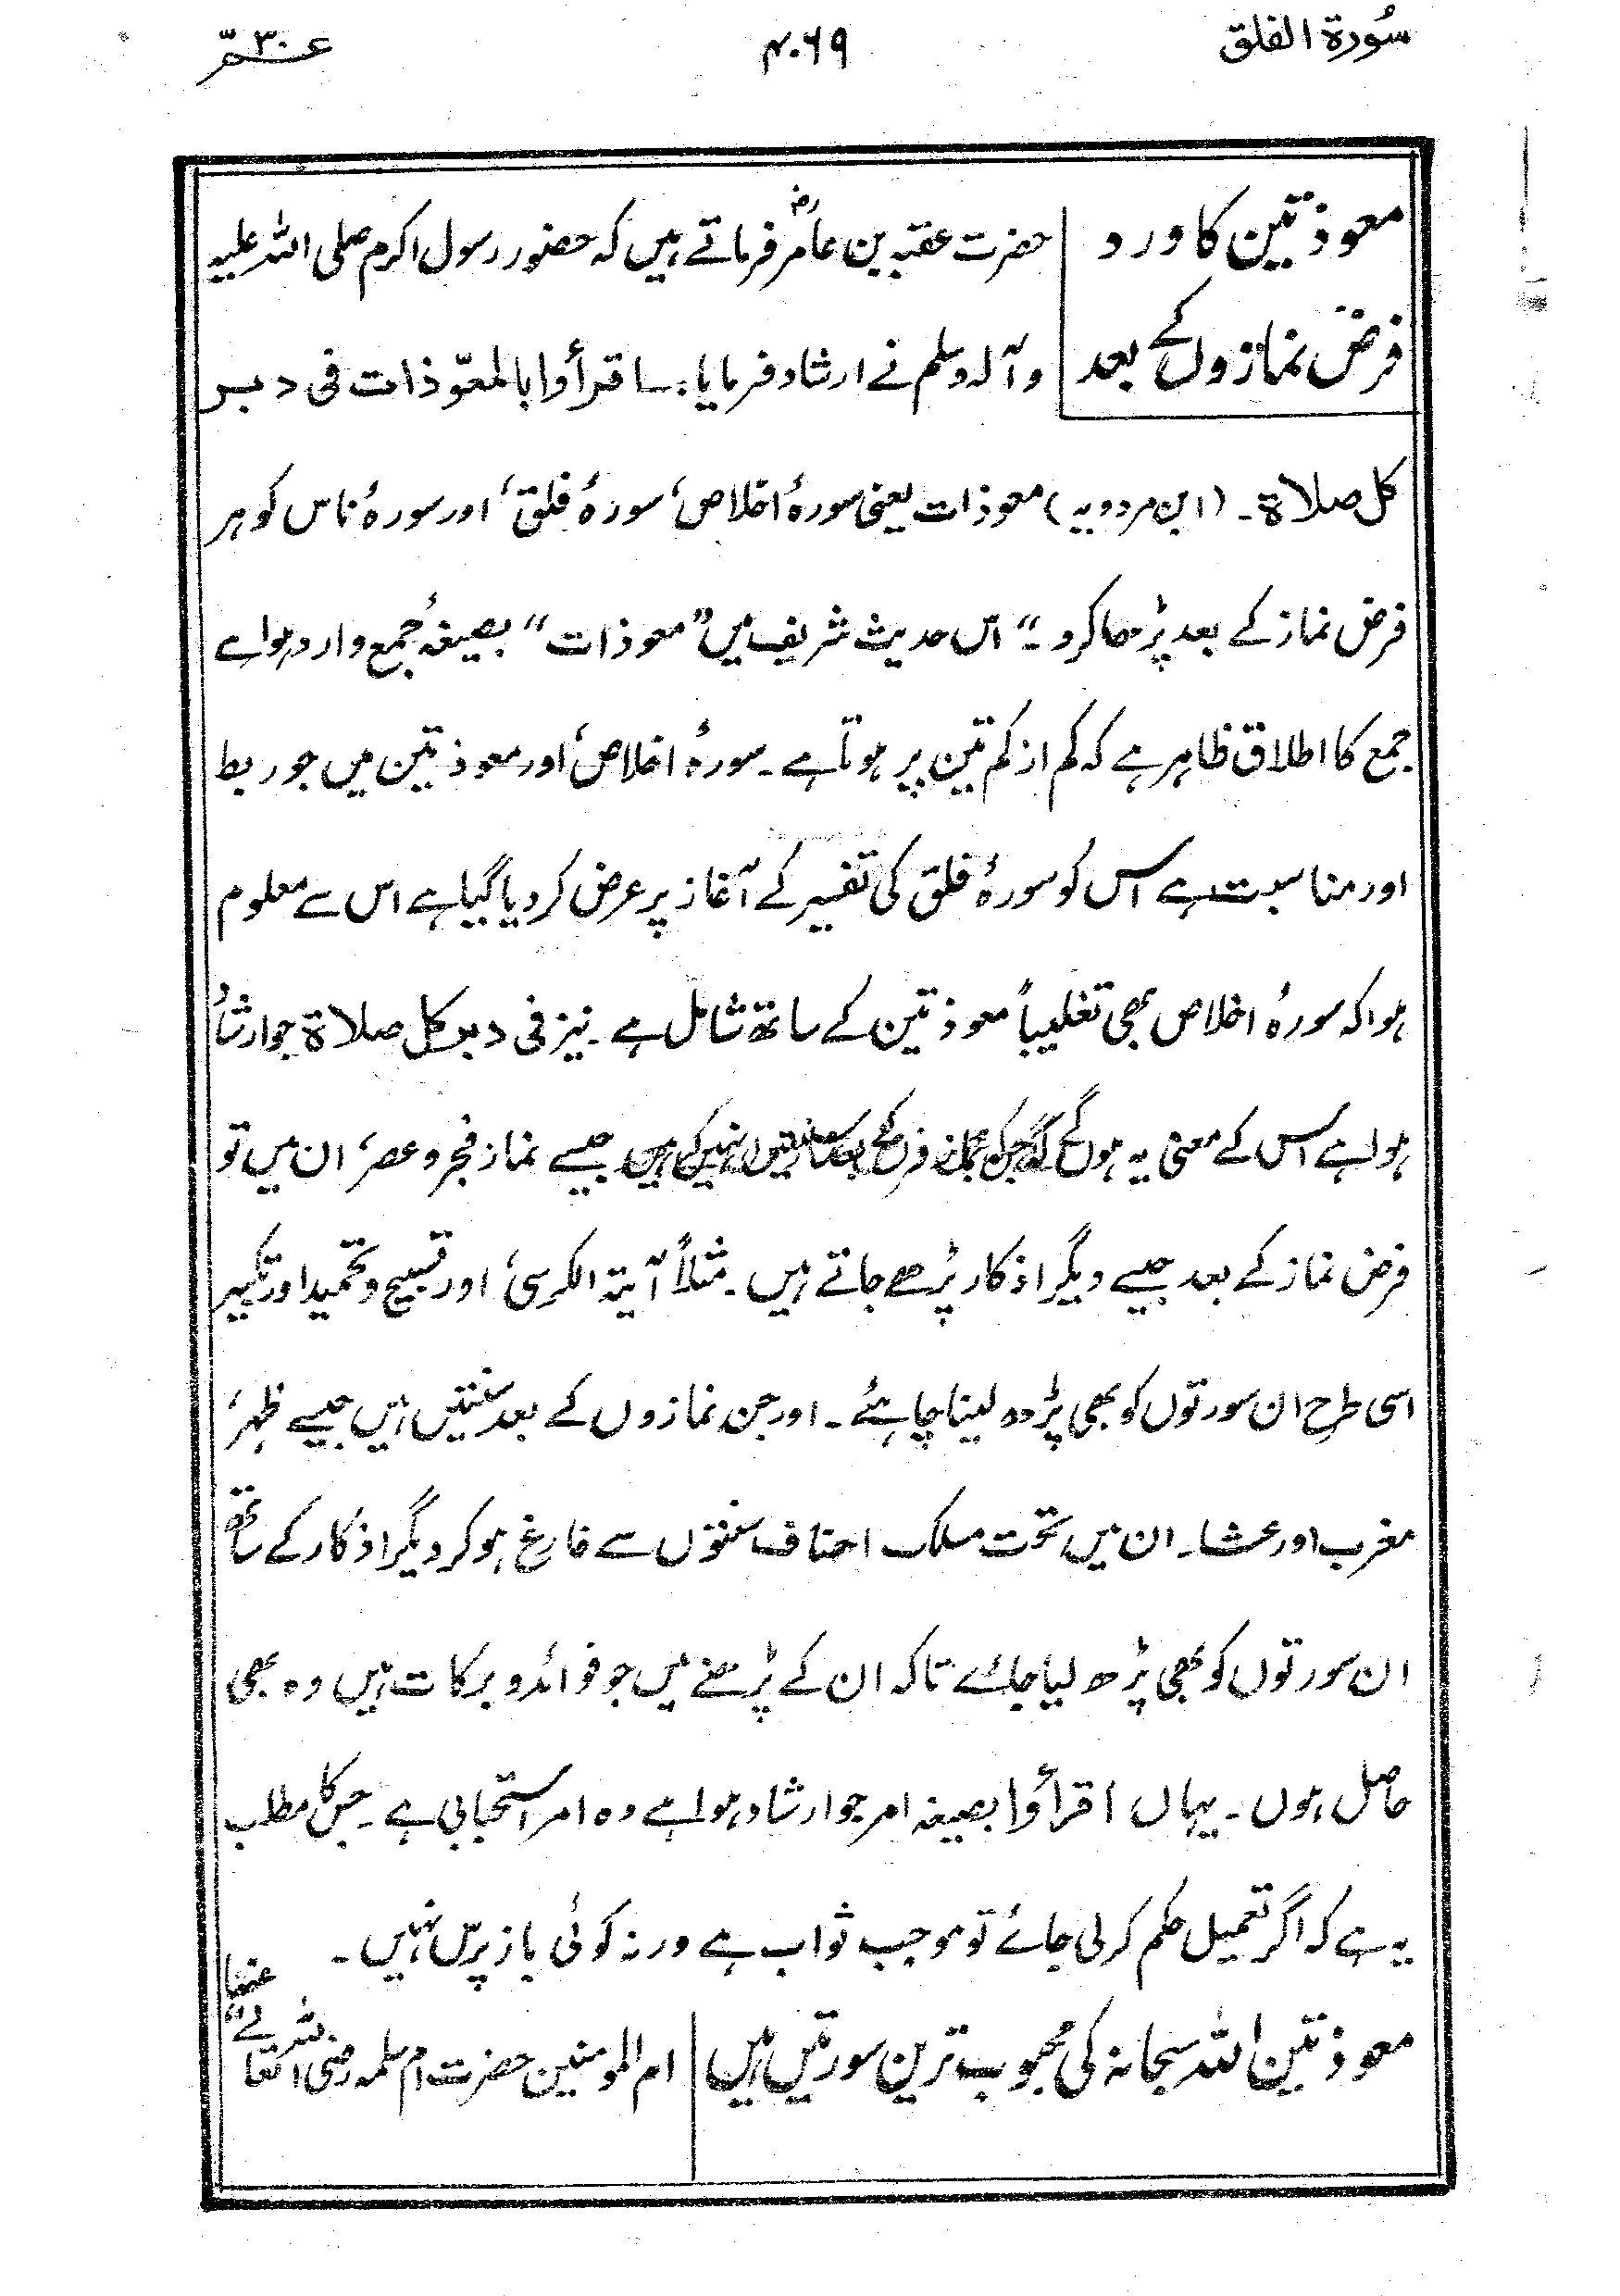 سُورة الفلق
۴۰۶۹
عمّ ۳۰
معوذتین کا ورد
فرض نمازوں کے بعد
حضرت عقبہ بن عامرؓ فرماتے ہیں کہ حضور رسول اکرم صلی اللہ علیہ
وآلہ وسلم نے ارشاد فرمایا: اقرأوا بالمعوّذات فی دبر
کل صلاۃ۔ (ابن مردویہ) معوذات یعنی سورۂ اخلاص، سورۂ فلق، اور سورۂ ناس کو ہر
فرض نماز کے بعد پڑھا کرو۔“ اس حدیث شریف میں ”معوذات“ بصیغۂ جمع وارد ہوا ہے
جمع کا اطلاق ظاہر ہے کہ کم از کم تین پر ہوتا ہے۔ سورۂ اخلاص، اور معوذتین میں جو ربط
اور مناسبت ہے اس کو سورۂ فلق کی تفسیر کے آغاز پر عرض کر دیا گیا ہے اس سے معلوم
ہوا کہ سورۂ اخلاص بھی تغلیباً معوذتین کے ساتھ شامل ہے۔ نیز فی دبر کل صلاۃ جو ارشاد
ہوا ہے اس کے معنی یہ ہوں گے کہ جن نماز فرض کے بعد سنتیں نہیں ہیں جیسے نماز فجر و عصر، ان میں تو
فرض نماز کے بعد جیسے دیگر اذکار پڑھے جاتے ہیں۔ مثلاً آیۃ الکرسی، اور تسبیح و تحمید اور تکبیر
اسی طرح ان سورتوں کو بھی پڑھ لینا چاہئے۔ اور جن نمازوں کے بعد سنتیں ہیں جیسے ظہر،
مغرب اور عشا۔ ان میں تحت مسلک احناف سنتوں سے فارغ ہو کر دیگر اذکار کے ساتھ
ان سورتوں کو بھی پڑھ لیا جائے تاکہ ان کے پڑھنے میں جو فوائد و برکات ہیں وہ بھی
حاصل ہوں۔ یہاں اقرأوا بصیغہ امر جو ارشاد ہوا ہے وہ امر استحبابی ہے۔ جس کا مطلب
یہ ہے کہ اگر تعمیل حکم کر لی جائے تو موجب ثواب ہے ورنہ کوئی باز پرس نہیں۔
معوذتین اللہ سبحانہ کی محبوب ترین سورتیں ہیں
ام المومنین حضرت ام سلمہ رضی اللہ تعالےٰ عنہا